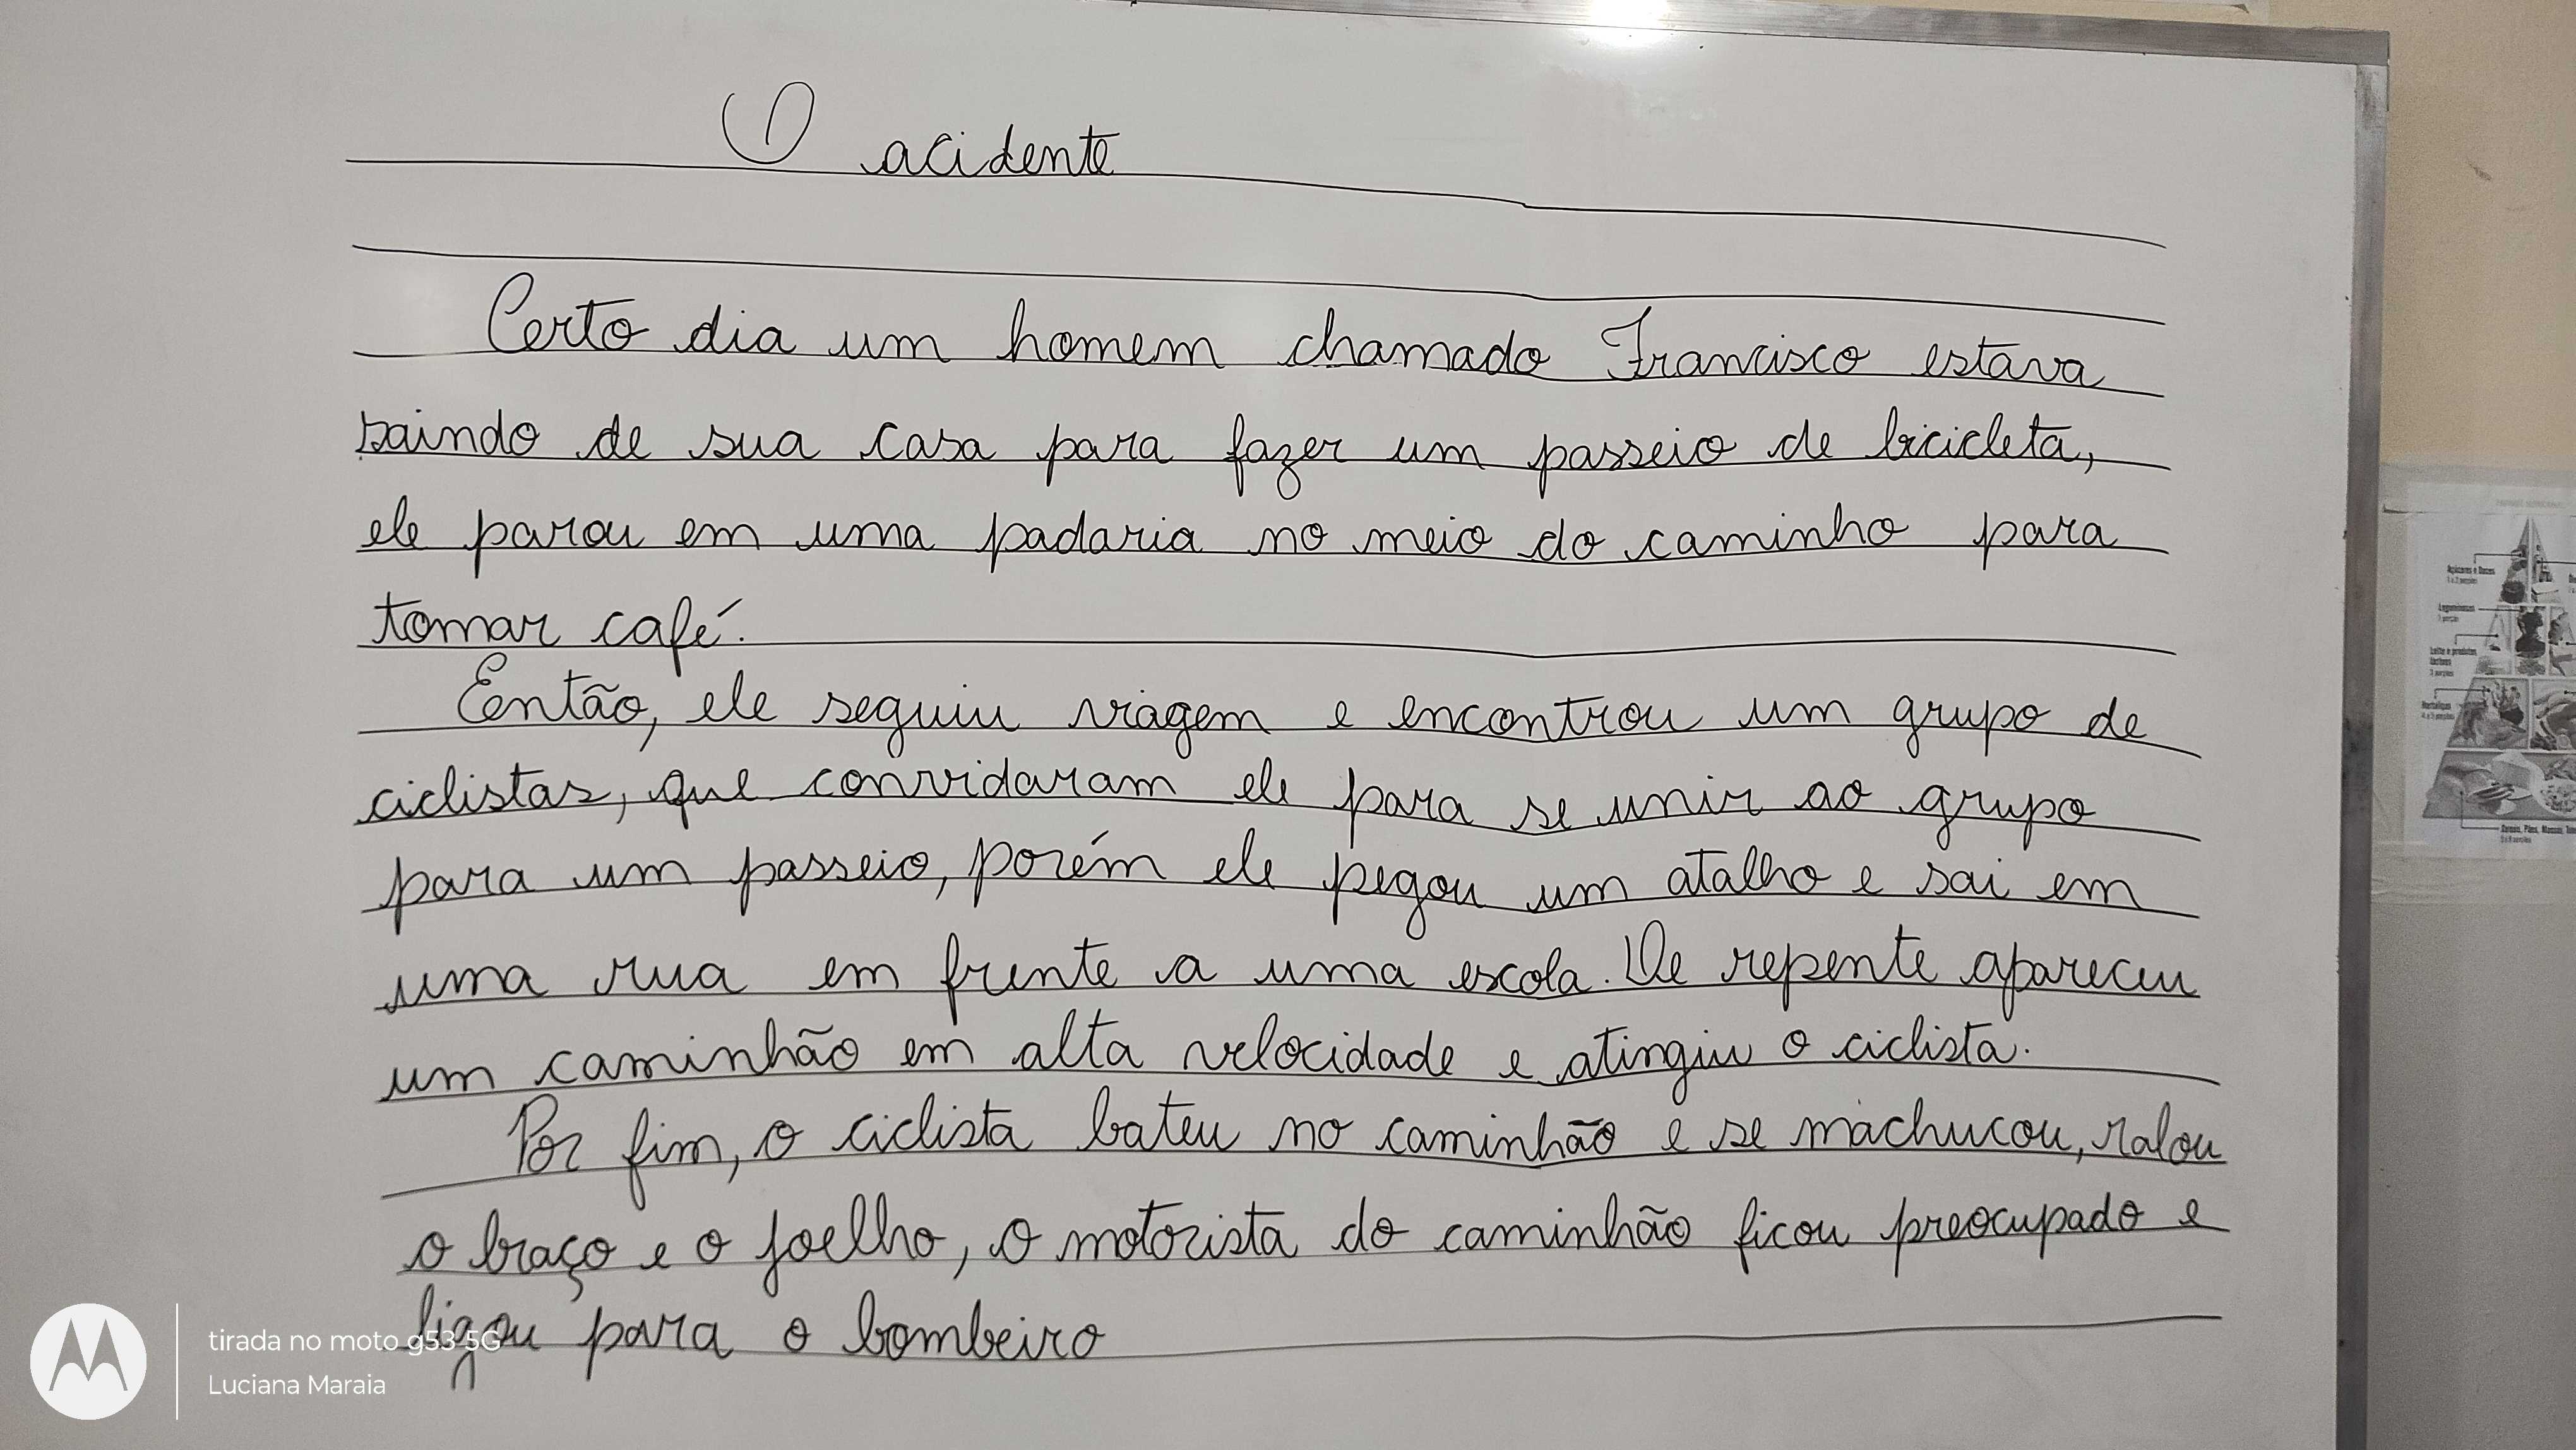 O acidente
Certo dia um homem chamado Francisco estava
saindo de sua casa para fazer um passeio de bicicleta,
ele parou em uma padaria no meio do caminho para
tomar café.
Então, ele seguiu viagem e encontrou um grupo de
ciclistas, que convidaram ele para se unir ao grupo
para um passeio, porém ele pegou um atalho e sai em
uma rua em frente a uma escola. De repente apareceu
um caminhão em alta velocidade e atingiu o ciclista.
Por fim, o ciclista bateu no caminhão e se machucou, ralou
o braço e o joelho, o motorista do caminhão ficou preocupado e
ligou para o bombeiro
tirada no moto g53 5G
Luciana Maraia
Açúcares e Doces
Leguminosas
1 porção
Leite e produtos
lácteos
3 porções
Hortaliças